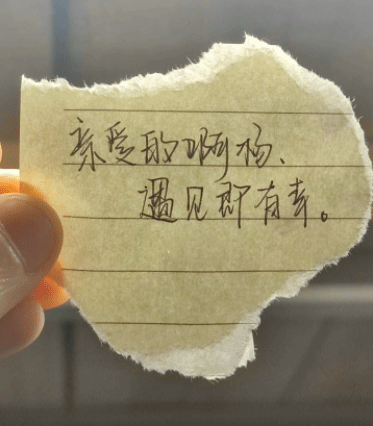 亲爱的啊杨、
遇见即有幸。